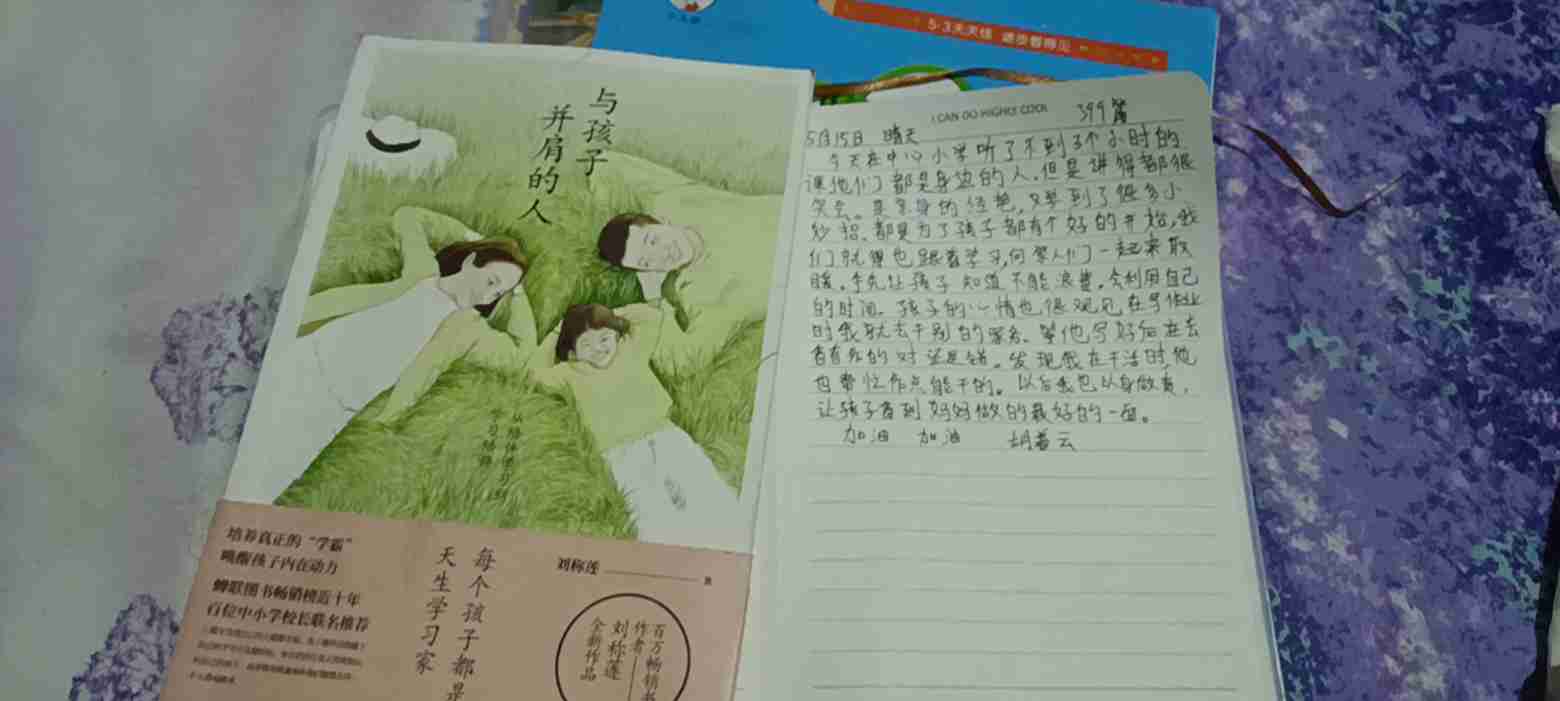 5·3天天练 进步看得见
与孩子
并肩的人
从陪伴学习到
学习陪伴
培养真正的“学霸”
唤醒孩子内在动力
蝉联图书畅销榜近十年
百位中小学校长联名推荐
每个孩子都是
天生学习家
刘称莲 著
百万畅销书
作者
刘称莲
全新作品
I CAN DO HIGHLY COOL
399篇
5月15日 晴天
今天在中心小学听了不到3个小时的
课他们都是身边的人,但是讲得都很
亲身的经艳,又学到了很多小
妙招,都是为了孩子都有个好的开始,我
们就跟着学习,向家人们一起来取
暖。让孩子知道不能浪费,会利用自己
的时间。孩子的心情也很 在写作业
时我就去干别的家务。等他写好后在去
看看 的对还是错。发现我在干活时,他
也帮忙作点能干的。以后我也以身做责,
让孩子看到妈妈做的最好的一面。
加油 加油 胡 云